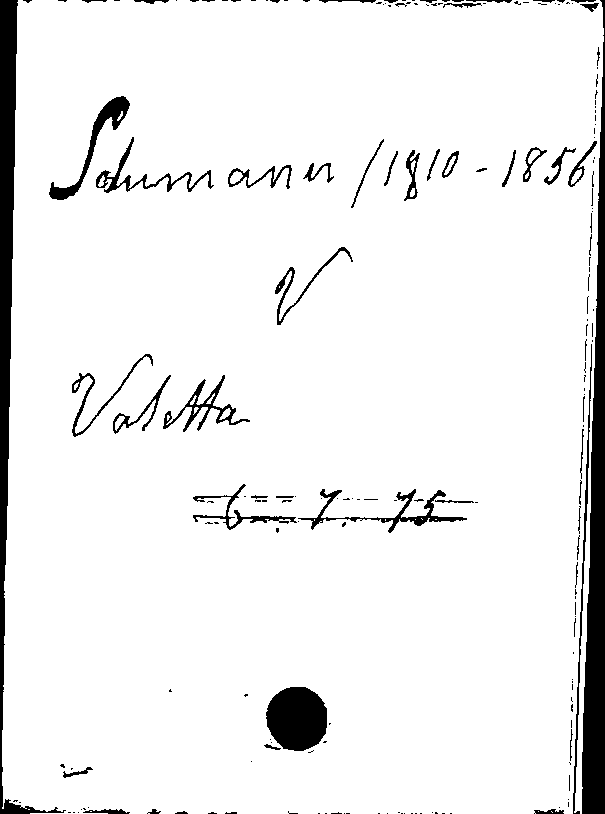 Schumann /1810 - 1856
V
Valetta
6. 7. 75